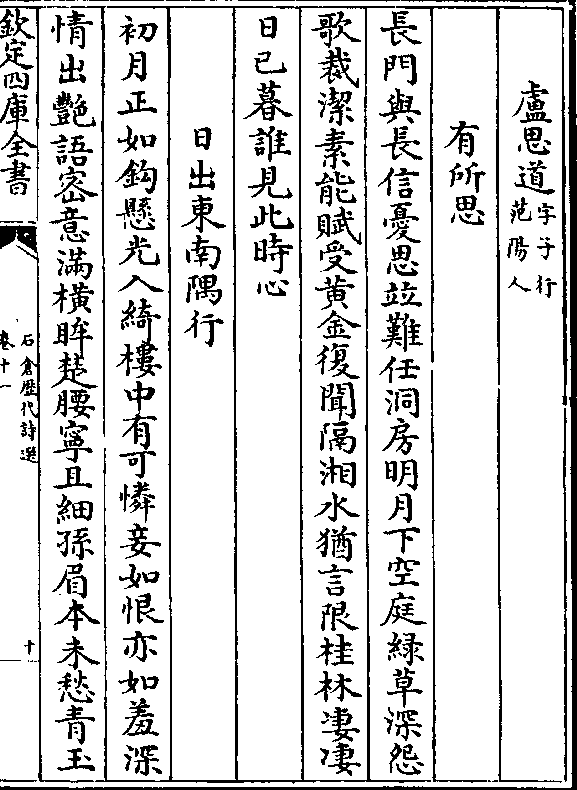 盧思道字子行范陽人
有所思
長門與長信憂思竝難任洞房明月下空庭綠草深怨
歌裁潔素能賦受黃金復聞隔湘水猶言限桂林凄凄
日已暮誰見此時心
日出東南隅行
初月正如鈎懸光入綺樓中有可憐妾如恨亦如羞深
情出艷語宻意滿橫眸楚腰寧且細孫眉本未愁青玉
欽定四庫全書
石倉歷代詩選
卷十一
十